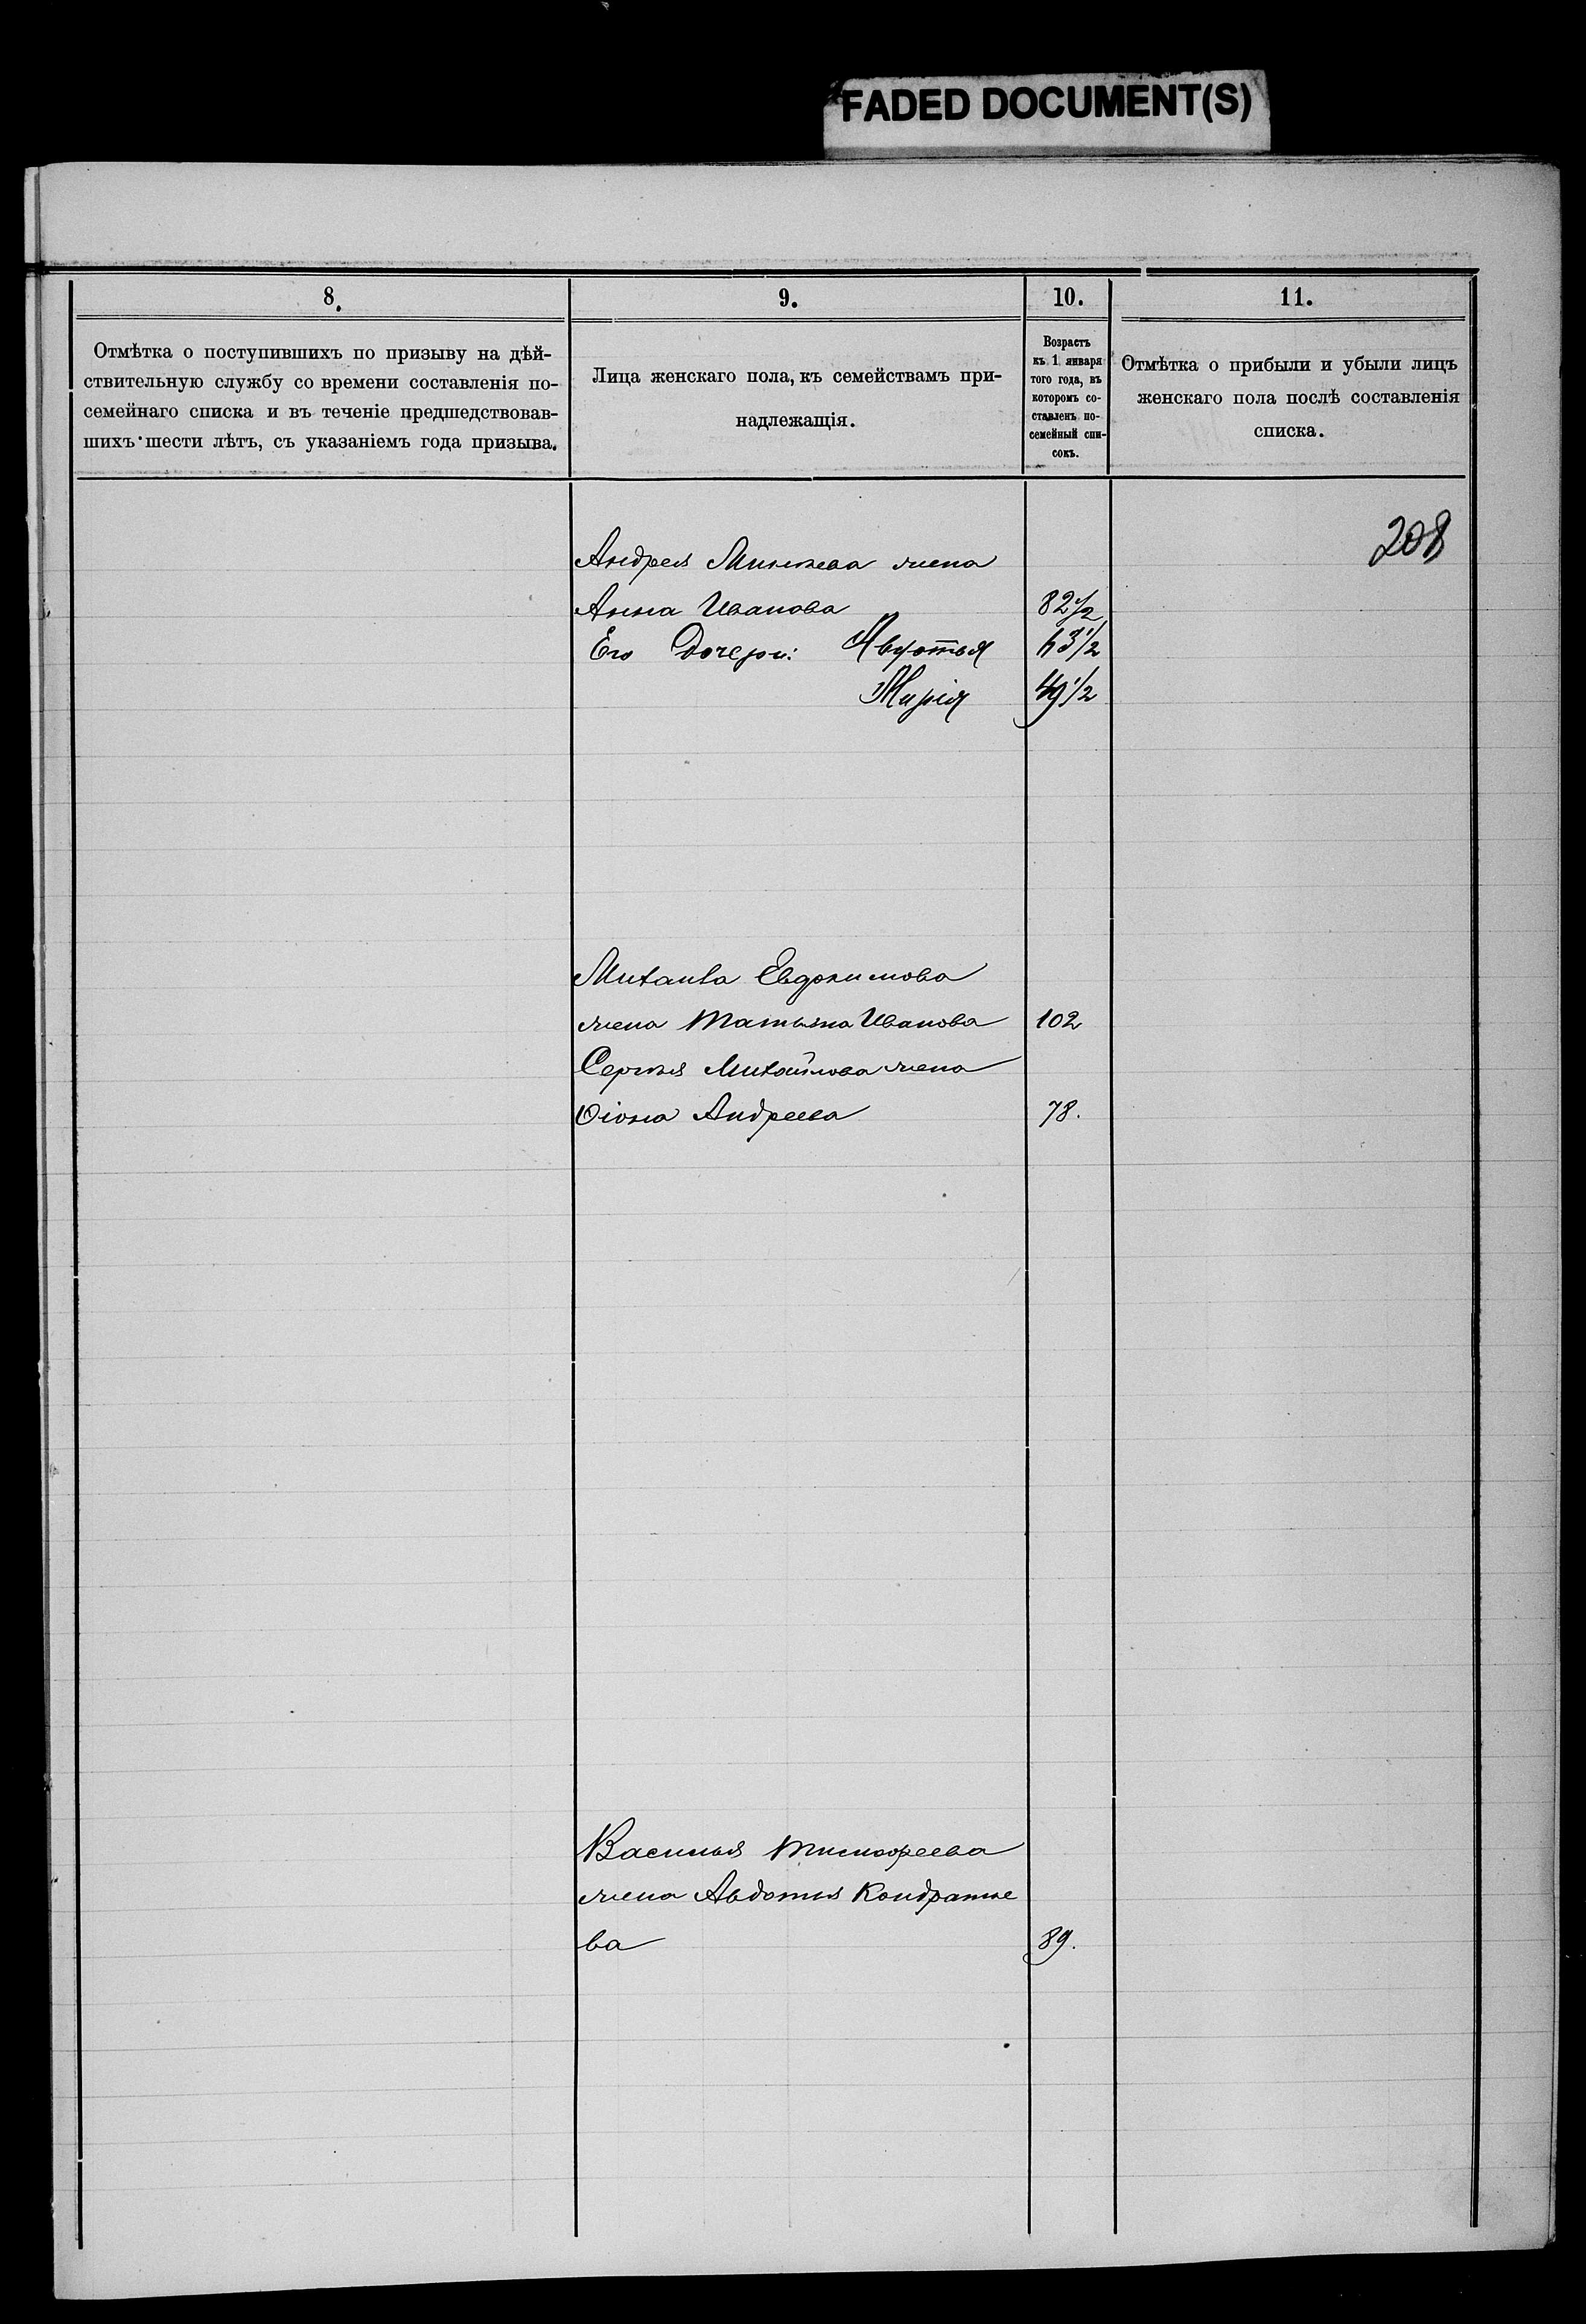 FADED DOCUMENT(S)
8.
9.
10.
11.
Отмѣтка о поступившихъ по призыву на дѣй-
ствительную службу со времени составленія по-
семейнаго списка и въ теченіе предшедствовав-
шихъ шести лѣтъ, съ указаніемъ года призыва.
Лица женскаго пола, къ семействамъ при-
надлежащія.
Возрастъ
къ 1 января
того года, въ
которомъ со-
ставленъ по-
семейный спи-
сокъ.
Отмѣтка о прибыли и убыли лицъ
женскаго пола послѣ составленія
списка.
208
Андрея жена
Анна Иванова 82 1/2
Его Дочери: Авдотья 63 1/2
Марія 49 1/2
Михаила Евдокимова
жена Татьяна Иванова 102
Сергѣя Михайлова жена
Андреева 78.
Василья Тимофеева
жена Авдотья Кондратье
ва 89.